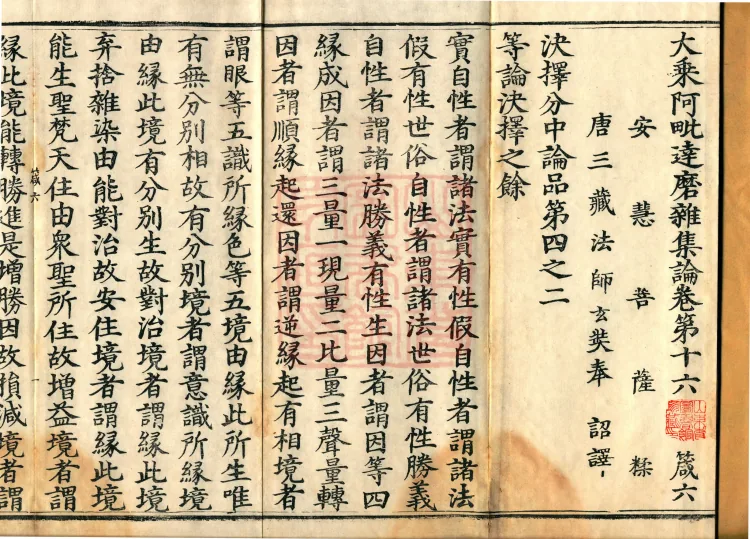 大乘阿毗達磨雜集論卷第十六 箴六
安慧菩薩糅
唐三藏法師玄奘奉 詔譯
決擇分中論品第四之二
等論決擇之餘
實自性者謂諸法實有性假自性者謂諸法
假有性世俗自性者謂諸法世俗有性勝義
自性者謂諸法勝義有性生因者謂因等四
緣成因者謂三量一現量二比量三聲量轉
因者謂順緣起還因者謂逆緣起有相境者
謂眼等五識所緣色等五境由緣此所生唯
有無分別相故有分別境者謂意識所緣境
由緣此境有分別生故對治境者謂緣此境
弃捨雜染由能對治故安住境者謂緣此境
能生聖梵天住由衆聖所住故增益境者謂
箴六
緣此境能轉勝進是增勝因故損減境者謂